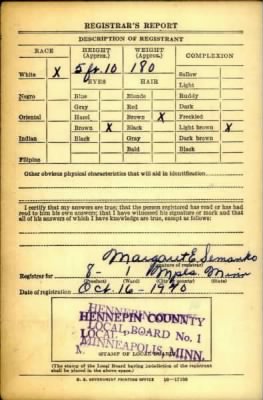 REGISTRAR'S REPORT
DESCRIPTION OF REGISTRANT
RACE HEIGHT (Approx.) WEIGHT (Approx.) COMPLEXION
White X 5 ft. 10 180 Sallow
EYES HAIR Light
Negro Blue Blonde Ruddy
Gray Red Dark
Oriental Hazel Brown X Freckled
Brown X Black Light brown X
Indian Black Gray Dark brown
Bald Black
Filipino
Other obvious physical characteristics that will aid in identification
I certify that my answers are true; that the person registered has read or has had
read to him his own answers; that I have witnessed his signature or mark and that
all of his answers of which I have knowledge are true, except as follows:
Margaret E. Semanko
(Signature of registrar)
Registrar for 8 - 1 Mpls. Minn
(Precinct) (Ward) (City or county) (State)
Date of registration Oct. 16 - 1940
HENNEPIN COUNTY
LOCAL BOARD No. 1
MINNEAPOLIS, MINN.
STAMP OF LOCAL BOARD
(The stamp of the Local Board having jurisdiction of the registrant
shall be placed in the above space.)
U. S. GOVERNMENT PRINTING OFFICE